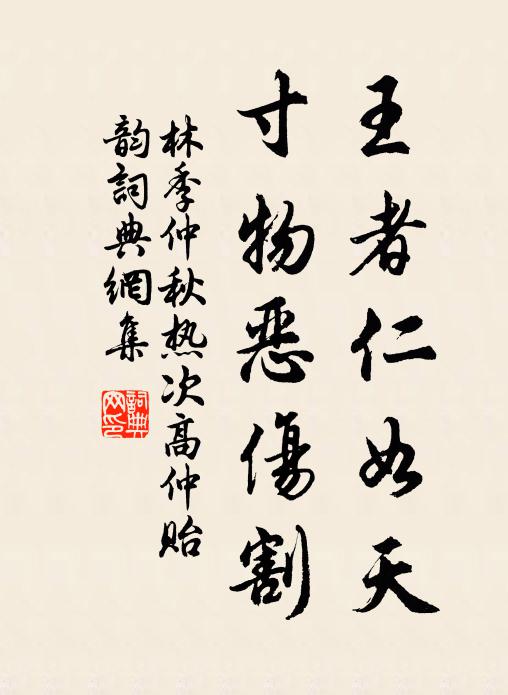 王者仁如天
寸物惡傷割
林季仲秋热次高仲貽
韵詞典網集
詞典网印